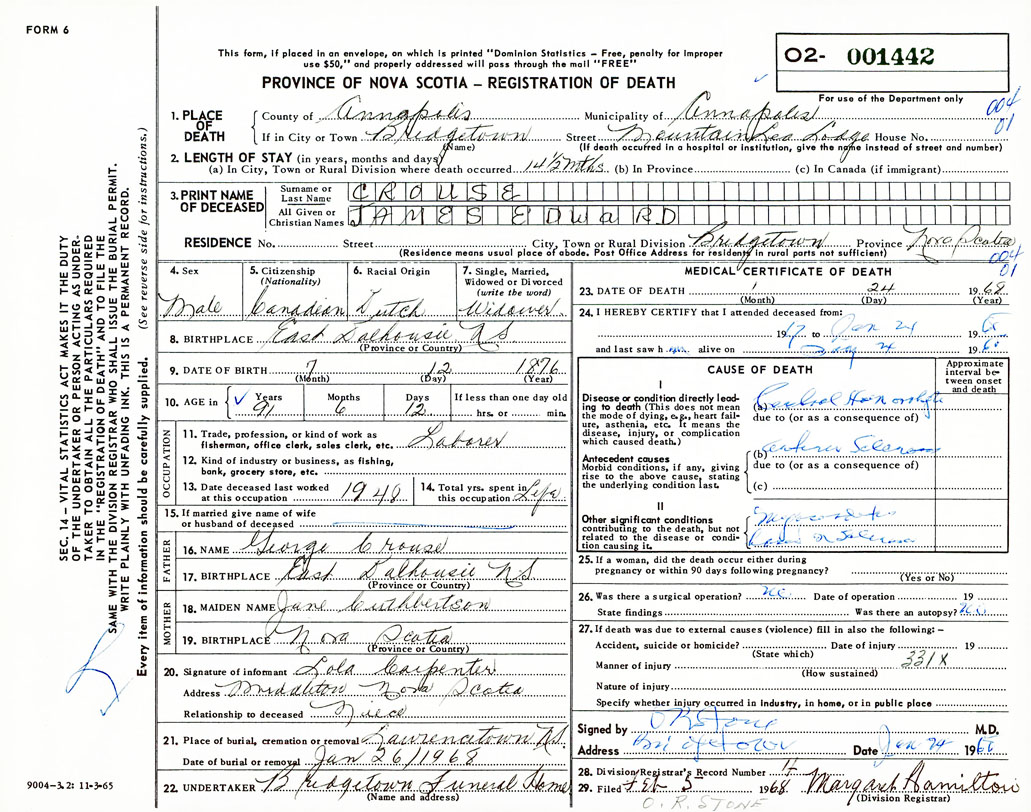 FORM 6
This form, if placed in an envelope, on which is printed "Dominion Statistics – Free, penalty for improper
use $50," and properly addressed will pass through the mail "FREE"
PROVINCE OF NOVA SCOTIA – REGISTRATION OF DEATH
02- 001442
For use of the Department only
004
01
1. PLACE OF DEATH
County of Annapolis Municipality of Annapolis
If in City or Town Bridgetown Street Mountain Lea Lodge House No.
(Name) (If death occurred in a hospital or institution, give the name instead of street and number)
2. LENGTH OF STAY (in years, months and days)
(a) In City, Town or Rural Division where death occurred 14½ Mths. (b) In Province (c) In Canada (if immigrant)
3. PRINT NAME OF DECEASED
Surname or Last Name CROUSE
All Given or Christian Names JAMES EDWaRD
RESIDENCE No. Street City, Town or Rural Division Bridgetown Province Nova Scotia
(Residence means usual place of abode. Post Office Address for residents in rural parts not sufficient)
004
01
4. Sex Male
5. Citizenship (Nationality) Canadian
6. Racial Origin Dutch
7. Single, Married, Widowed or Divorced (write the word) Widower
8. BIRTHPLACE East Dalhousie NS
(Province or Country)
9. DATE OF BIRTH 7 12 1876
(Month) (Day) (Year)
10. AGE in Years 91 Months 6 Days 12 If less than one day old hrs. or min.
OCCUPATION
11. Trade, profession, or kind of work as fisherman, office clerk, sales clerk, etc. Laborer
12. Kind of industry or business, as fishing, bank, grocery store, etc.
13. Date deceased last worked at this occupation 1948
14. Total yrs. spent in this occupation Life
15. If married give name of wife or husband of deceased
FATHER
16. NAME George Crouse
17. BIRTHPLACE East Dalhousie NS
(Province or Country)
MOTHER
18. MAIDEN NAME Jane Cuthbertson
19. BIRTHPLACE Nova Scotia
(Province or Country)
20. Signature of informant Lola Carpenter
Address Middleton Nova Scotia
Relationship to deceased Niece
21. Place of burial, cremation or removal Lawrencetown NS.
Date of burial or removal Jan 26/1968
22. UNDERTAKER Bridgetown Funeral Home
(Name and address)
MEDICAL CERTIFICATE OF DEATH
23. DATE OF DEATH 1 24 1968
(Month) (Day) (Year)
24. I HEREBY CERTIFY that I attended deceased from:
19 to Jan 24 19
and last saw h alive on 24 19
CAUSE OF DEATH
Approximate interval between onset and death
I
Disease or condition directly leading to death (This does not mean the mode of dying, e.g., heart failure, asthenia, etc. It means the disease, injury, or complication which caused death.)
(a) Cerebral
due to (or as a consequence of)
Antecedent causes
Morbid conditions, if any, giving rise to the above cause, stating the underlying condition last.
(b)
due to (or as a consequence of)
(c)
II
Other significant conditions contributing to the death, but not related to the disease or condition causing it.
25. If a woman, did the death occur either during pregnancy or within 90 days following pregnancy?
(Yes or No)
26. Was there a surgical operation? no Date of operation 19
State findings Was there an autopsy? no
27. If death was due to external causes (violence) fill in also the following: –
Accident, suicide or homicide? Date of injury 19
(State which)
Manner of injury 331X
(How sustained)
Nature of injury
Specify whether injury occurred in industry, in home, or in public place
Signed by O R Stone M.D.
Address Bridgetown Date Jan 24 196
28. Division Registrar's Record Number 4
29. Filed Feb 5 1968 Margaret Hamilton
(Division Registrar)
O. R. STONE
SEC. 14 – VITAL STATISTICS ACT MAKES IT THE DUTY
OF THE UNDERTAKER OR PERSON ACTING AS UNDER-
TAKER TO OBTAIN ALL THE PARTICULARS REQUIRED
IN THE "REGISTRATION OF DEATH" AND TO FILE THE
SAME WITH THE DIVISION REGISTRAR WHO SHALL ISSUE THE BURIAL PERMIT.
WRITE PLAINLY WITH UNFADING INK. THIS IS A PERMANENT RECORD.
Every item of information should be carefully supplied. (See reverse side for instructions.)
9004-3.2: 11-3-65